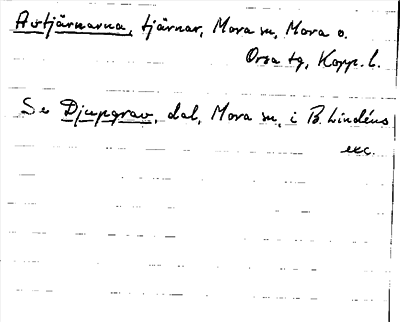 Avtjärnarna, tjärnar, Mora sn, Mora o.
Orsa tg, Kopp. l.
Se Djupgrav, dal, Mora sn, i B. Lindéns
exc.